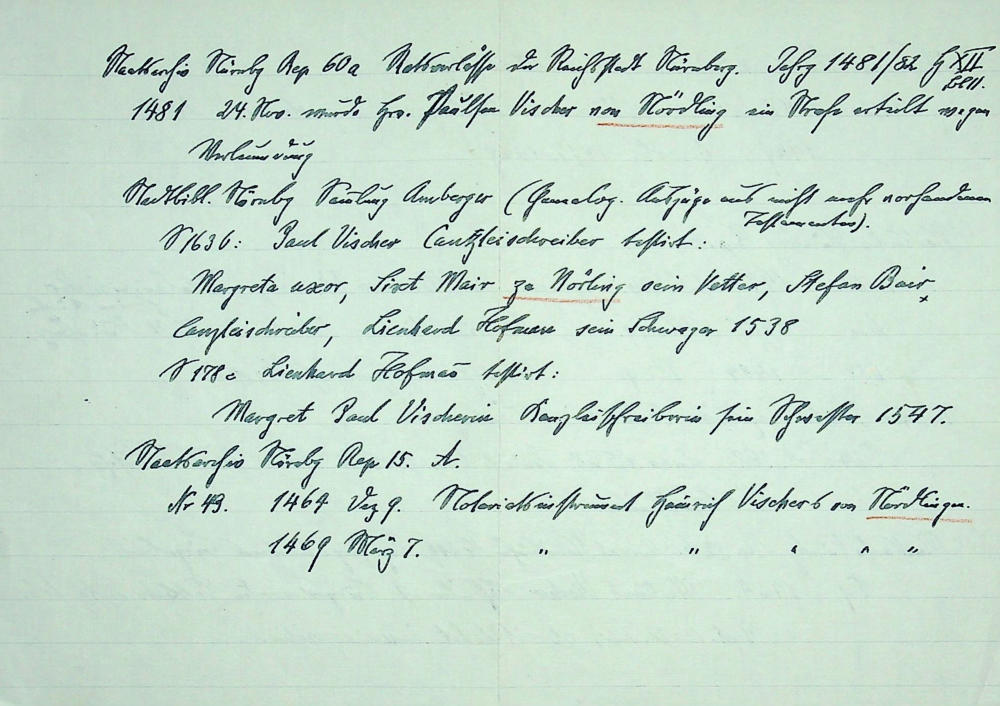 Staatsarchiv Nürnbg Rep 60a Ratsverlässe der Reichsstadt Nürnberg. Jahrg 1481/82 H XII
Bl 11.
1481 24. Nov. wurde Hrn. Paulsen Vischer von Nördling ein Strafe erteilt wegen
Verleumdung
Stadtbibl. Nürnbg Samlung Amberger (Genealog. Auszüge aus nicht mehr vorhandenen
Testamenten).
S 1636: Paul Vischer Cantzleischreiber testirt:
Margreta uxor, Sixt Mair zu Nörling sein Vetter, Stefan Bair
Canzleischreiber, Lienhard Hofman sein Schwager 1538
S 178 Lienhard Hofman testirt:
Margret Paul Vischerin Kanzleischreiberin sein Schwester 1547.
Staatsarchiv Nürnbg Rep 15. A.
Nr 43. 1464 Dez 9. Notariatsinstrument Heinrich Vischers von Nördlingen.
1469 März 7. " " " " "